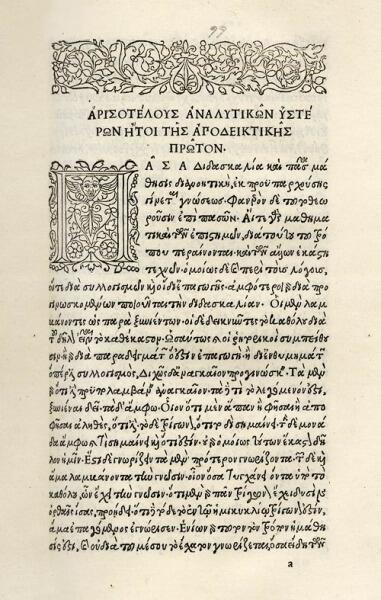 99
ΑΡΙΣΟΤΕΛΟΥΣ ΑΝΑΛΥΤΙΚΩΝ ΥΣΤΕ
ΡΩΝ ΗΤΟΙ ΤΗΣ ΑΠΟΔΕΙΚΤΙΚΗΣ
ΠΡΩΤΟΝ·
ΠΑΣΑ διδασκαλία καὶ πᾶσα μά
θησις διανοητικὴ, ἐκ προϋπαρχούσης
γίνεται γνώσεως· Φανερὸν δὲ τοῦτο θεω
ροῦσιν ἐπὶ πασῶν· Αἵ τε γὰρ μαθημα
τικαὶ τῶν ἐπιστημῶν, διὰ τούτου τοῦ τρό
που περαίνονται· καὶ τῶν ἄλλων ἑκάστη
τεχνῶν· ὁμοίως δὲ καὶ περὶ τοὺς λόγους,
οἵ τε διὰ συλλογισμῶν, καὶ οἱ δι' ἐπαγωγῆς· ἀμφότεροι γὰρ διὰ προ
γινωσκομένων ποιοῦνται τὴν διδασκαλίαν· Οἱ μὲν λαμ
βάνοντες ὡς παρὰ ξυνιέντων· οἱ δὲ δεικνύντες τὸ καθόλου διὰ
τοῦ δῆλον εἶναι τὸ καθέκαστον· Ὡσαύτως δὲ καὶ οἱ ῥητορικοὶ συμπείθου
σιν· ἢ γὰρ διὰ παραδειγμάτων ὅ ἐστιν ἐπαγωγὴ· ἢ δι' ἐνθυμημάτων
ὅπερ ἐστὶ συλλογισμός· Διχῶς δὲ ἀναγκαῖον προγινώσκειν· Τὰ μὲν
γὰρ ὅτι ἔστι προϋπολαμβάνειν ἀναγκαῖον· τὰ δὲ τί τὸ λεγόμενόν ἐστι,
ξυνιέναι δεῖ· τὰ δ' ἄμφω· Οἷον ὅτι μὲν ἅπαν ἢ φῆσαι ἢ ἀπο
φῆσαι ἀληθὲς, ὅτι ἔστι· τὸ δὲ τρίγωνον, ὅτι τοδὶ σημαίνει· τὴν δὲ μονά
δα ἄμφω καὶ τί σημαίνει καὶ ὅτι ἔστιν· οὐ γὰρ ὁμοίως τούτων ἕκαστον δῆ
λον ἡμῖν· Ἔστι δὲ γνωρίζειν τὰ μὲν πρότερον γνωρίζοντα· τῶν δὲ καὶ
ἅμα λαμβάνοντα τὴν γνῶσιν· οἷον ὅσα τυγχάνει ὄντα ὑπὸ τὸ
καθόλου ὧν ἔχει τὴν γνῶσιν· ὅτι μὲν γὰρ πᾶν τρίγωνον ἔχει δυσὶν
ὀρθαῖς ἴσας, προῄδει· ὅτι δὲ τόδε τὸ ἐν τῷ ἡμικυκλίῳ τρίγωνόν ἐστιν,
ἅμα ἐπαγόμενος ἐγνώρισεν· Ἐνίων γὰρ τοῦτον τὸν τρόπον ἡ μάθη
σίς ἐστι, καὶ οὐ διὰ τοῦ μέσου τὸ ἔσχατον γνωρίζεται, ὅσα ἤδη τῶν
a